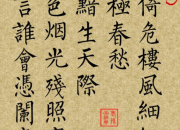 倚危樓風細
極春愁
黯生天際
色烟光殘照
言誰會憑闌